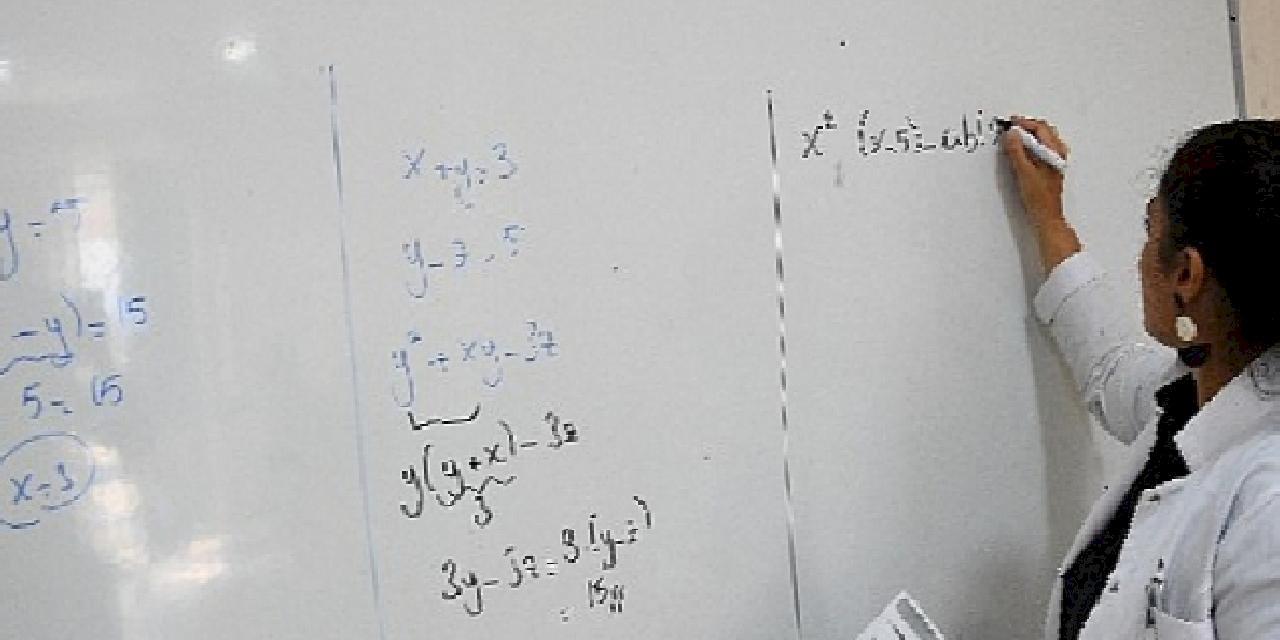 y = 7
-y) = 15
5 = 15
x = 3
x + y = 3
y - z = 5
y² + xy - 3z
y(y + x) - 3z
3
3y - 3z = 3(y - z)
= 15
x² (x-5) - ab(